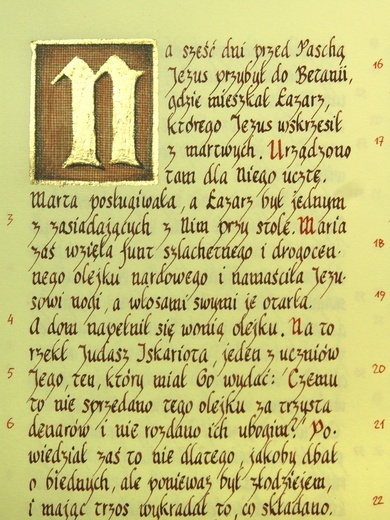 Na sześć dni przed Paschą
Jezus przybył do Betanii,
gdzie mieszkał Łazarz,
którego Jezus wskrzesił
z martwych. Urządzono
tam dla Niego ucztę.
Marta posługiwała, a Łazarz był jednym
3 z zasiadających z Nim przy stole. Maria
zaś wzięła funt szlachetnego i drogocen-
nego olejku nardowego i namaściła Jezu-
sowi nogi, a włosami swymi je otarła.
4 A dom napełnił się wonią olejku. Na to
rzekł Judasz Iskariota, jeden z uczniów
5 Jego, ten, który miał Go wydać: Czemu
to nie sprzedano tego olejku za trzysta
6 denarów i nie rozdano ich ubogim? Po-
wiedział zaś to nie dlatego, jakoby dbał
o biednych, ale ponieważ był złodziejem,
i mając trzos wykradał to, co składano.
16
17
18
19
20
21
22